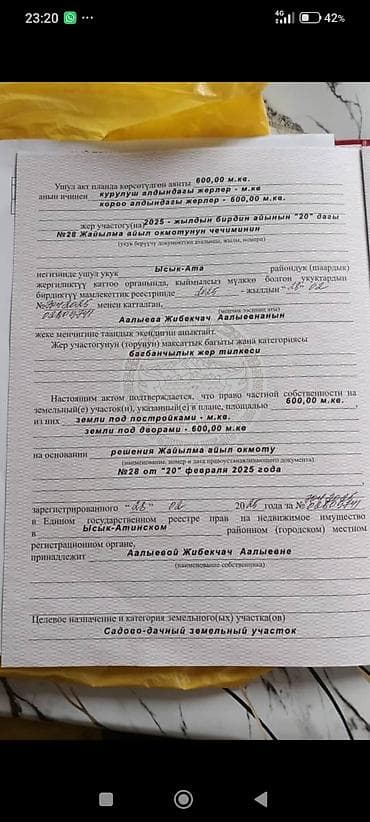 23:20
4G
42%
Ушул акт планда көрсөтүлгөн аянты 600,00 м.кв.
анын ичинен курулуш алдындагы жерлер - м.кв
короо алдындагы жерлер - 600,00 м.кв.
жер участогу(на) 2025 - жылдын бирдин айынын "20" дагы
№28 Жайылма айыл окмотунун чечиминин
негизинде ушул укук Ысык-Ата райондук (шаардык)
жергиликтүү каттоо органында, кыймылсыз мүлккө болгон укуктардын
бирдиктүү мамлекеттик реестринде 2025 - жылдын - 28 - 02
№ менен катталган,
Аалыева Жибекчач Аалыевнанын
жеке менчигине таандык экендигин аныктайт.
Жер участогунун (торунун) максаттык багыты жана категориясы
багбанчылык жер тилкеси
Настоящим актом подтверждается, что право частной собственности на
земельный(е) участок(и), указанный(е) в плане, площадью 600,00 м.кв.
из них земли под постройками - м.кв.
земли под дворами - 600,00 м.кв
на основании решения Жайылма айыл окмоту
(наименование, номер и дата правоустанавливающего документа)
№28 от "20" февраля 2025 года
зарегистрированного "28" 02 2025 года за №
в Едином государственном реестре прав на недвижимое имущество
в Ысык-Атинском районном (городском) местном
регистрационном органе,
принадлежит Аалыевой Жибекчач Аалыевне
(наименование собственника)
Целевое назначение и категория земельного(ых) участка(ов)
Садово-дачный земельный участок